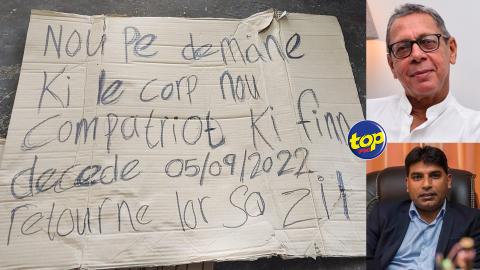 Nou Pe demane
Ki le corp nou
compatriot ki finn
decede 05/09/2022
retourne lor so zil
top